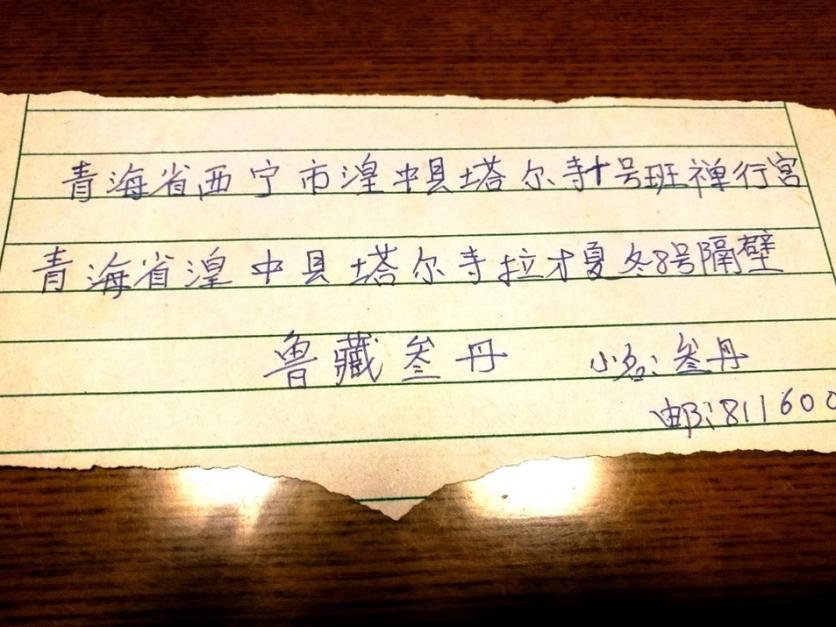 青海省西宁市湟中县塔尔寺十号班禅行宫
青海省湟中县塔尔寺拉才夏冬8号隔壁
鲁藏叁丹 小名:叁丹
邮:811600